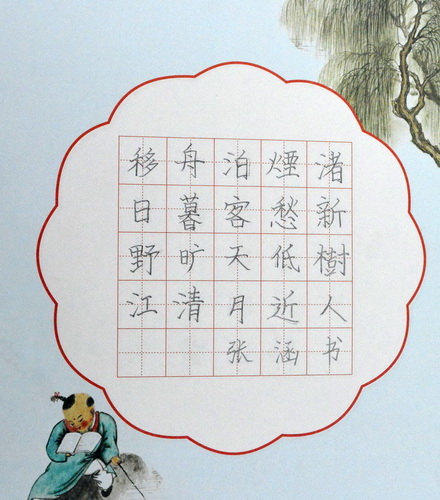 移舟泊煙渚
日暮客愁新
野旷天低樹
江清月近人
张涵书